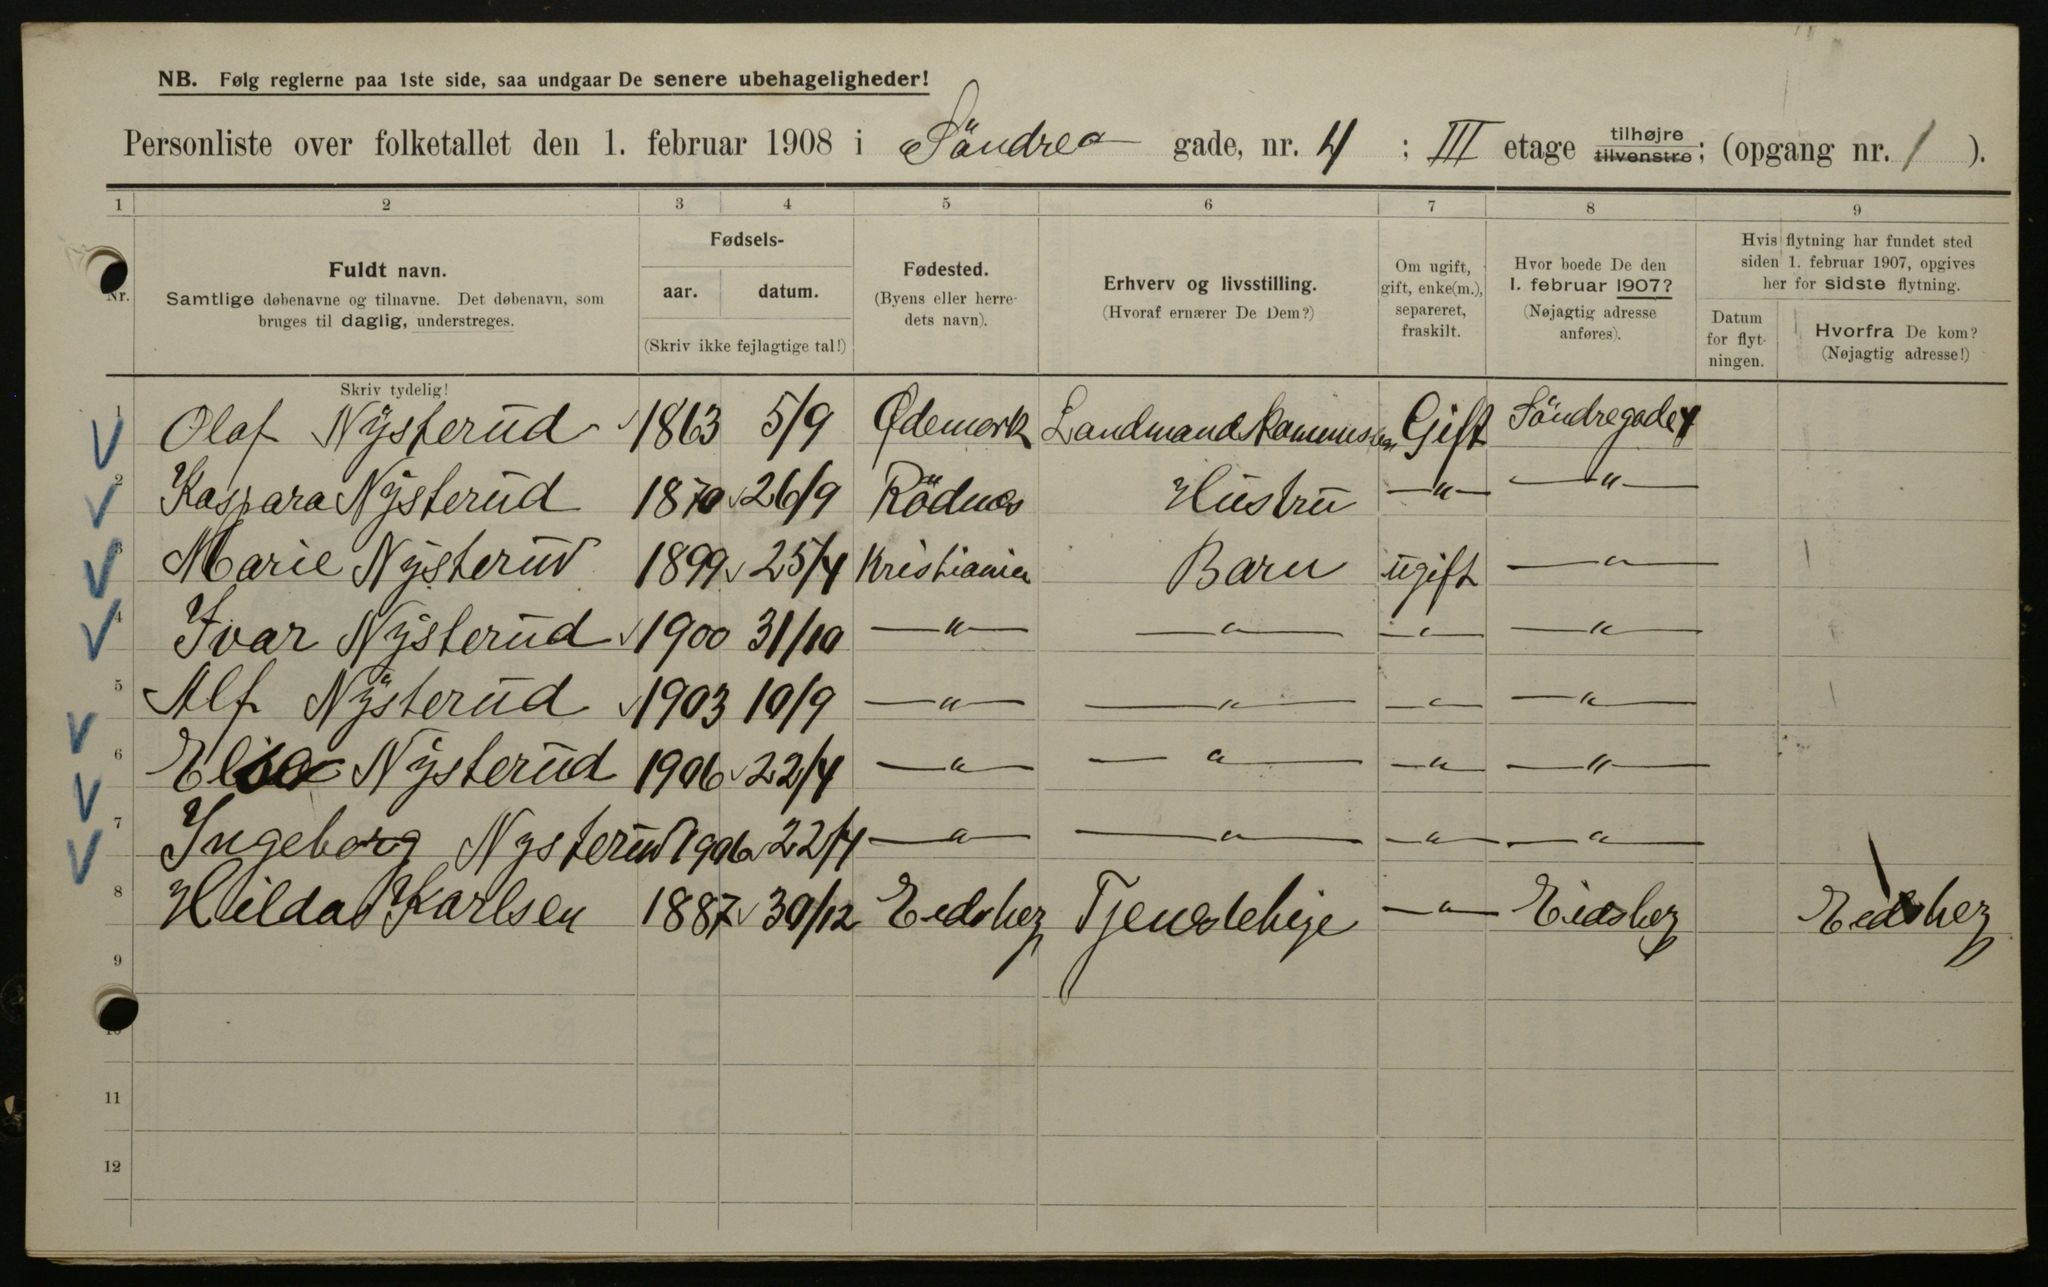 NB. Følg reglerne paa 1ste side, saa undgaar De senere ubehageligheder!
Personliste over folketallet den 1. februar 1908 i Söndre gade, nr. 4 ; III etage tilhøjre tilvenstre; (opgang nr. 1 ).
1 2 3 4 5 6 7 8 9
Nr.
Fuldt navn.
Samtlige døbenavne og tilnavne. Det døbenavn, som
bruges til daglig, understreges.
Skriv tydelig!
Fødsels-
aar. datum.
(Skriv ikke fejlagtige tal!)
Fødested.
(Byens eller herre-
dets navn).
Erhverv og livsstilling.
(Hvoraf ernærer De Dem?)
Om ugift,
gift, enke(m.),
separeret,
fraskilt.
Hvor boede De den
1. februar 1907?
(Nøjagtig adresse
anføres).
Hvis flytning har fundet sted
siden 1. februar 1907, opgives
her for sidste flytning.
Datum
for flyt-
ningen.
Hvorfra De kom?
(Nøjagtig adresse!)
1 Olaf Nysterud 1863 5/9 Ödemork Gift Söndregade 4
2 Kaspara Nysterud 1870 26/9 Rödnes Hustru —"— —"—
3 Marie Nysterud 1899 25/4 Kristiania Barn ugift —"—
4 Ivar Nysterud 1900 31/10 —"— —"— —"— —"—
5 Alf Nysterud 1903 10/9 —"— —"— —"— —"—
6 Elsa Nysterud 1906 22/4 —"— —"— —"— —"—
7 Ingeborg Nysterud 1906 22/4 —"— —"— —"— —"—
8 Hilda Karlsen 1887 30/12 Eidsberg Tjenestepige —"— Eidsberg Eidsberg
9
10
11
12